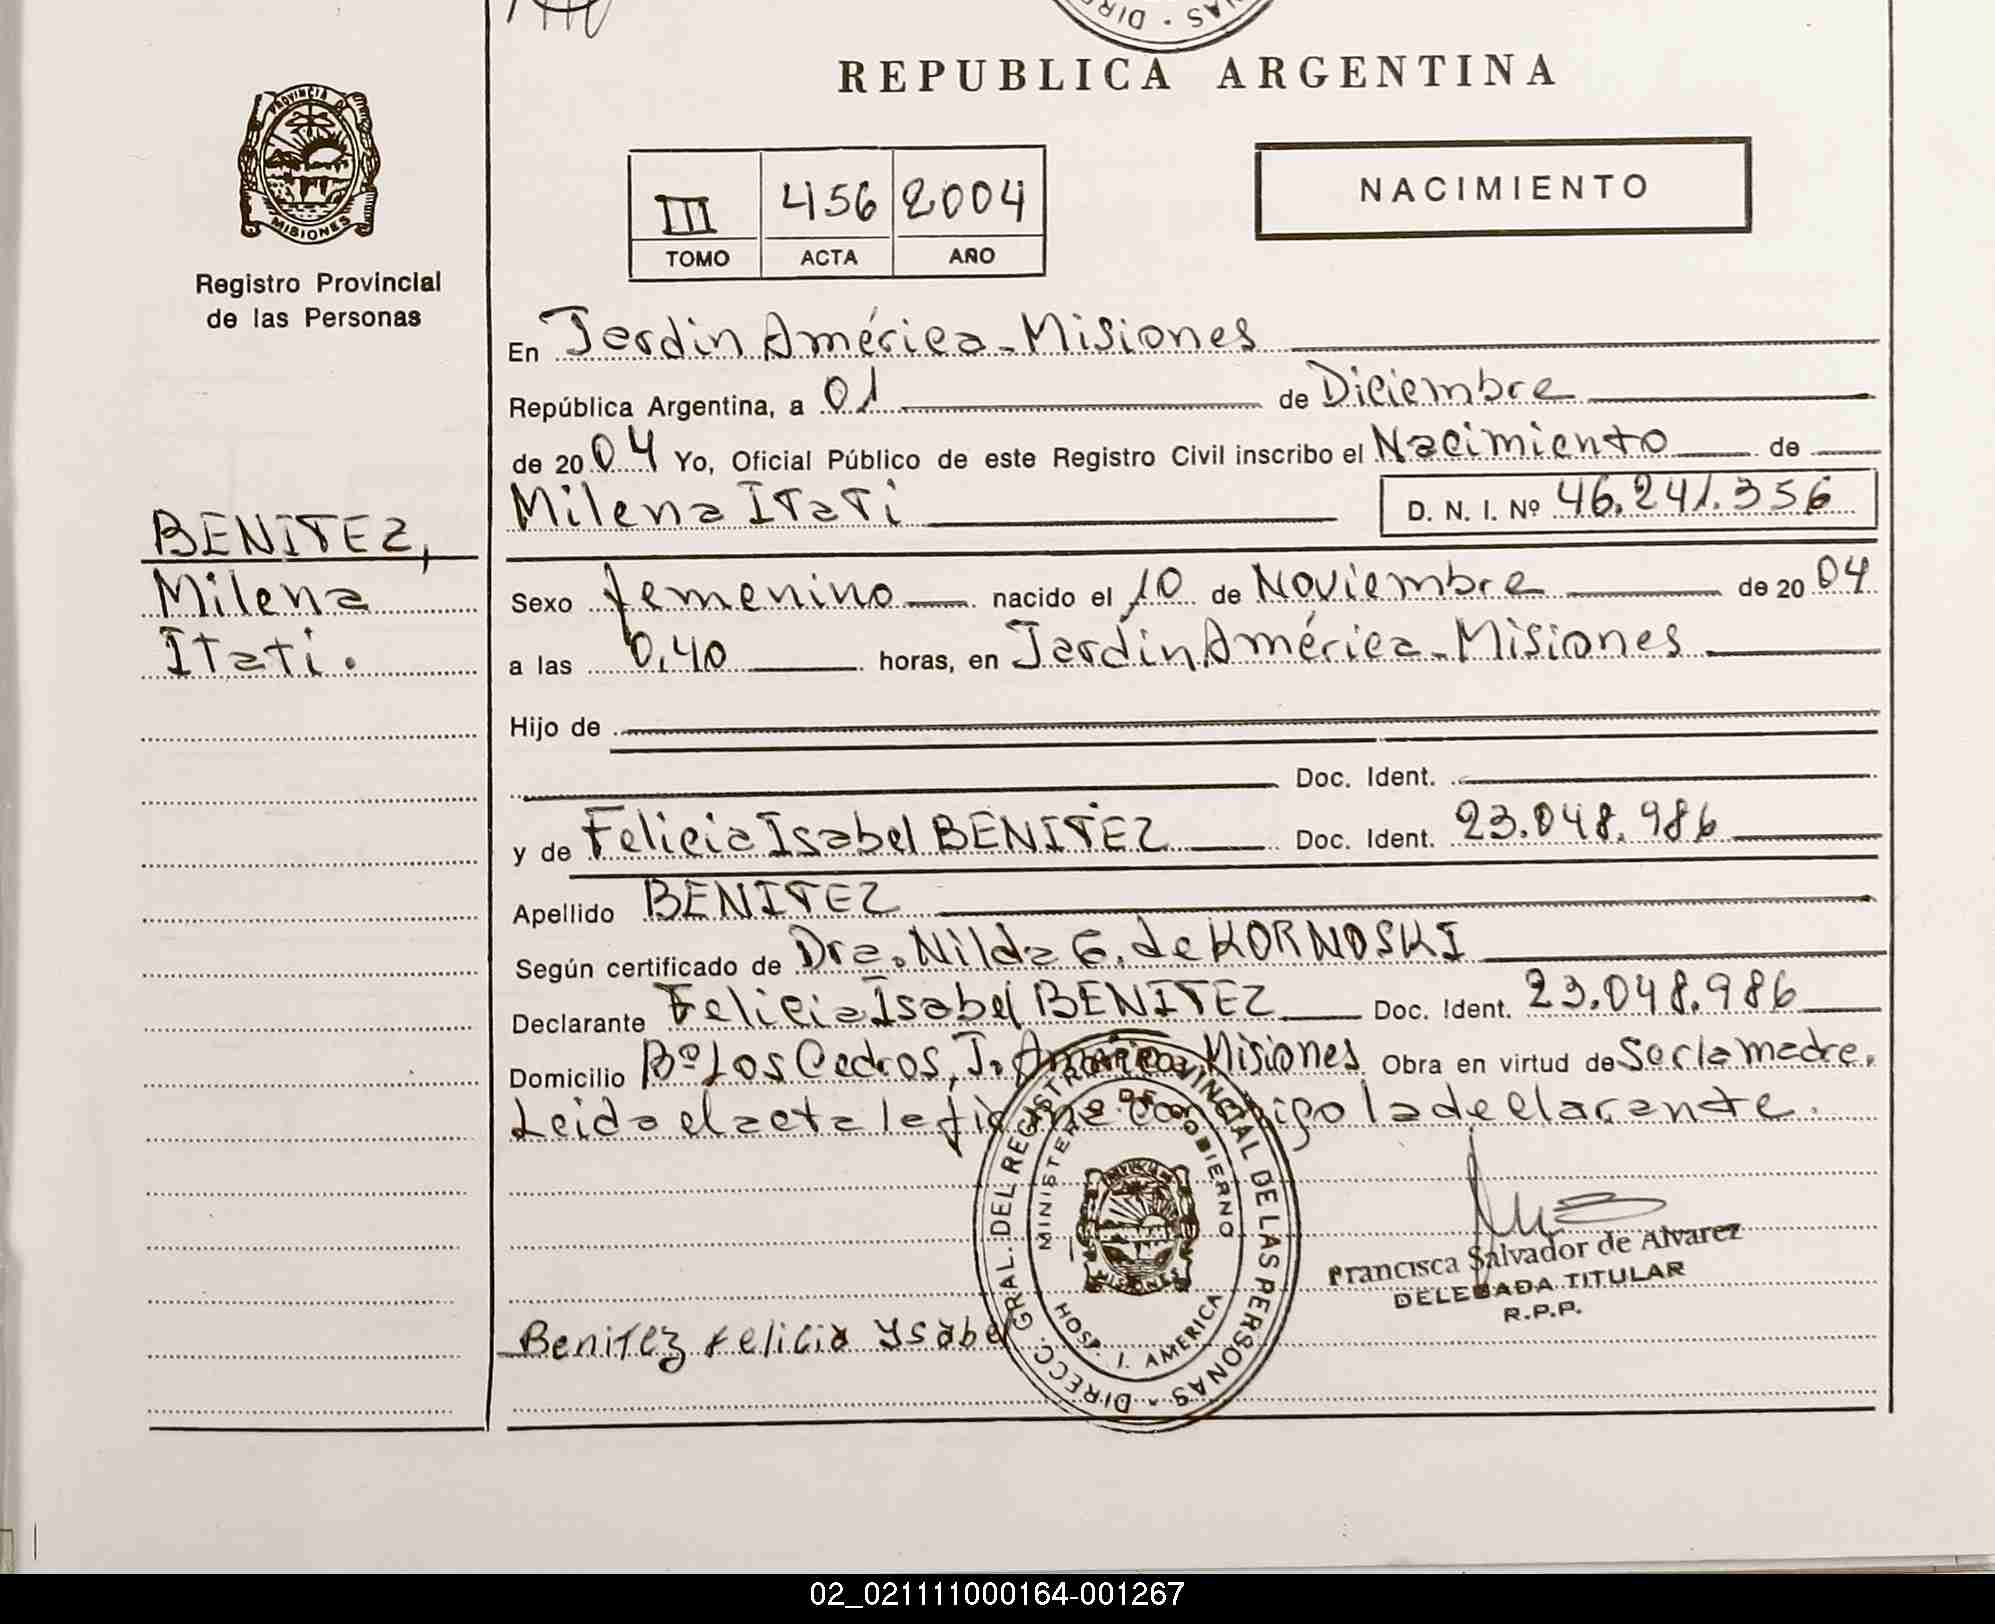 REPUBLICA ARGENTINA
PROVINCIA DE
MISIONES
Registro Provincial
de las Personas
III 456 2004
TOMO ACTA AÑO
NACIMIENTO
En Jardin América - Misiones
República Argentina, a 01 de Diciembre
de 2004 Yo, Oficial Público de este Registro Civil inscribo el Nacimiento de
Milena Itati D. N. I. Nº 46.241.356
BENITEZ,
Milena
Itati.
Sexo femenino nacido el 10 de Noviembre de 2004
a las 0,40 horas, en Jardin América - Misiones
Hijo de
Doc. Ident.
y de Felicia Isabel BENITEZ Doc. Ident. 23.048.986
Apellido BENITEZ
Según certificado de Dra. Nilda G. de KORNOSKI
Declarante Felicia Isabel BENITEZ Doc. Ident. 23.048.986
Domicilio Bº Los Cedros, J. América, Misiones Obra en virtud de Ser la madre.
Leida el acta la firma conmigo la declarante.
DIRECC. GRAL. DEL REGISTRO PROVINCIAL DE LAS PERSONAS
MINISTERIO DE GOBIERNO
MISIONES
HOSP. J. AMERICA
Francisca Salvador de Alvarez
DELEGADA TITULAR
R.P.P.
Benitez Felicia Ysabel
02_021111000164-001267